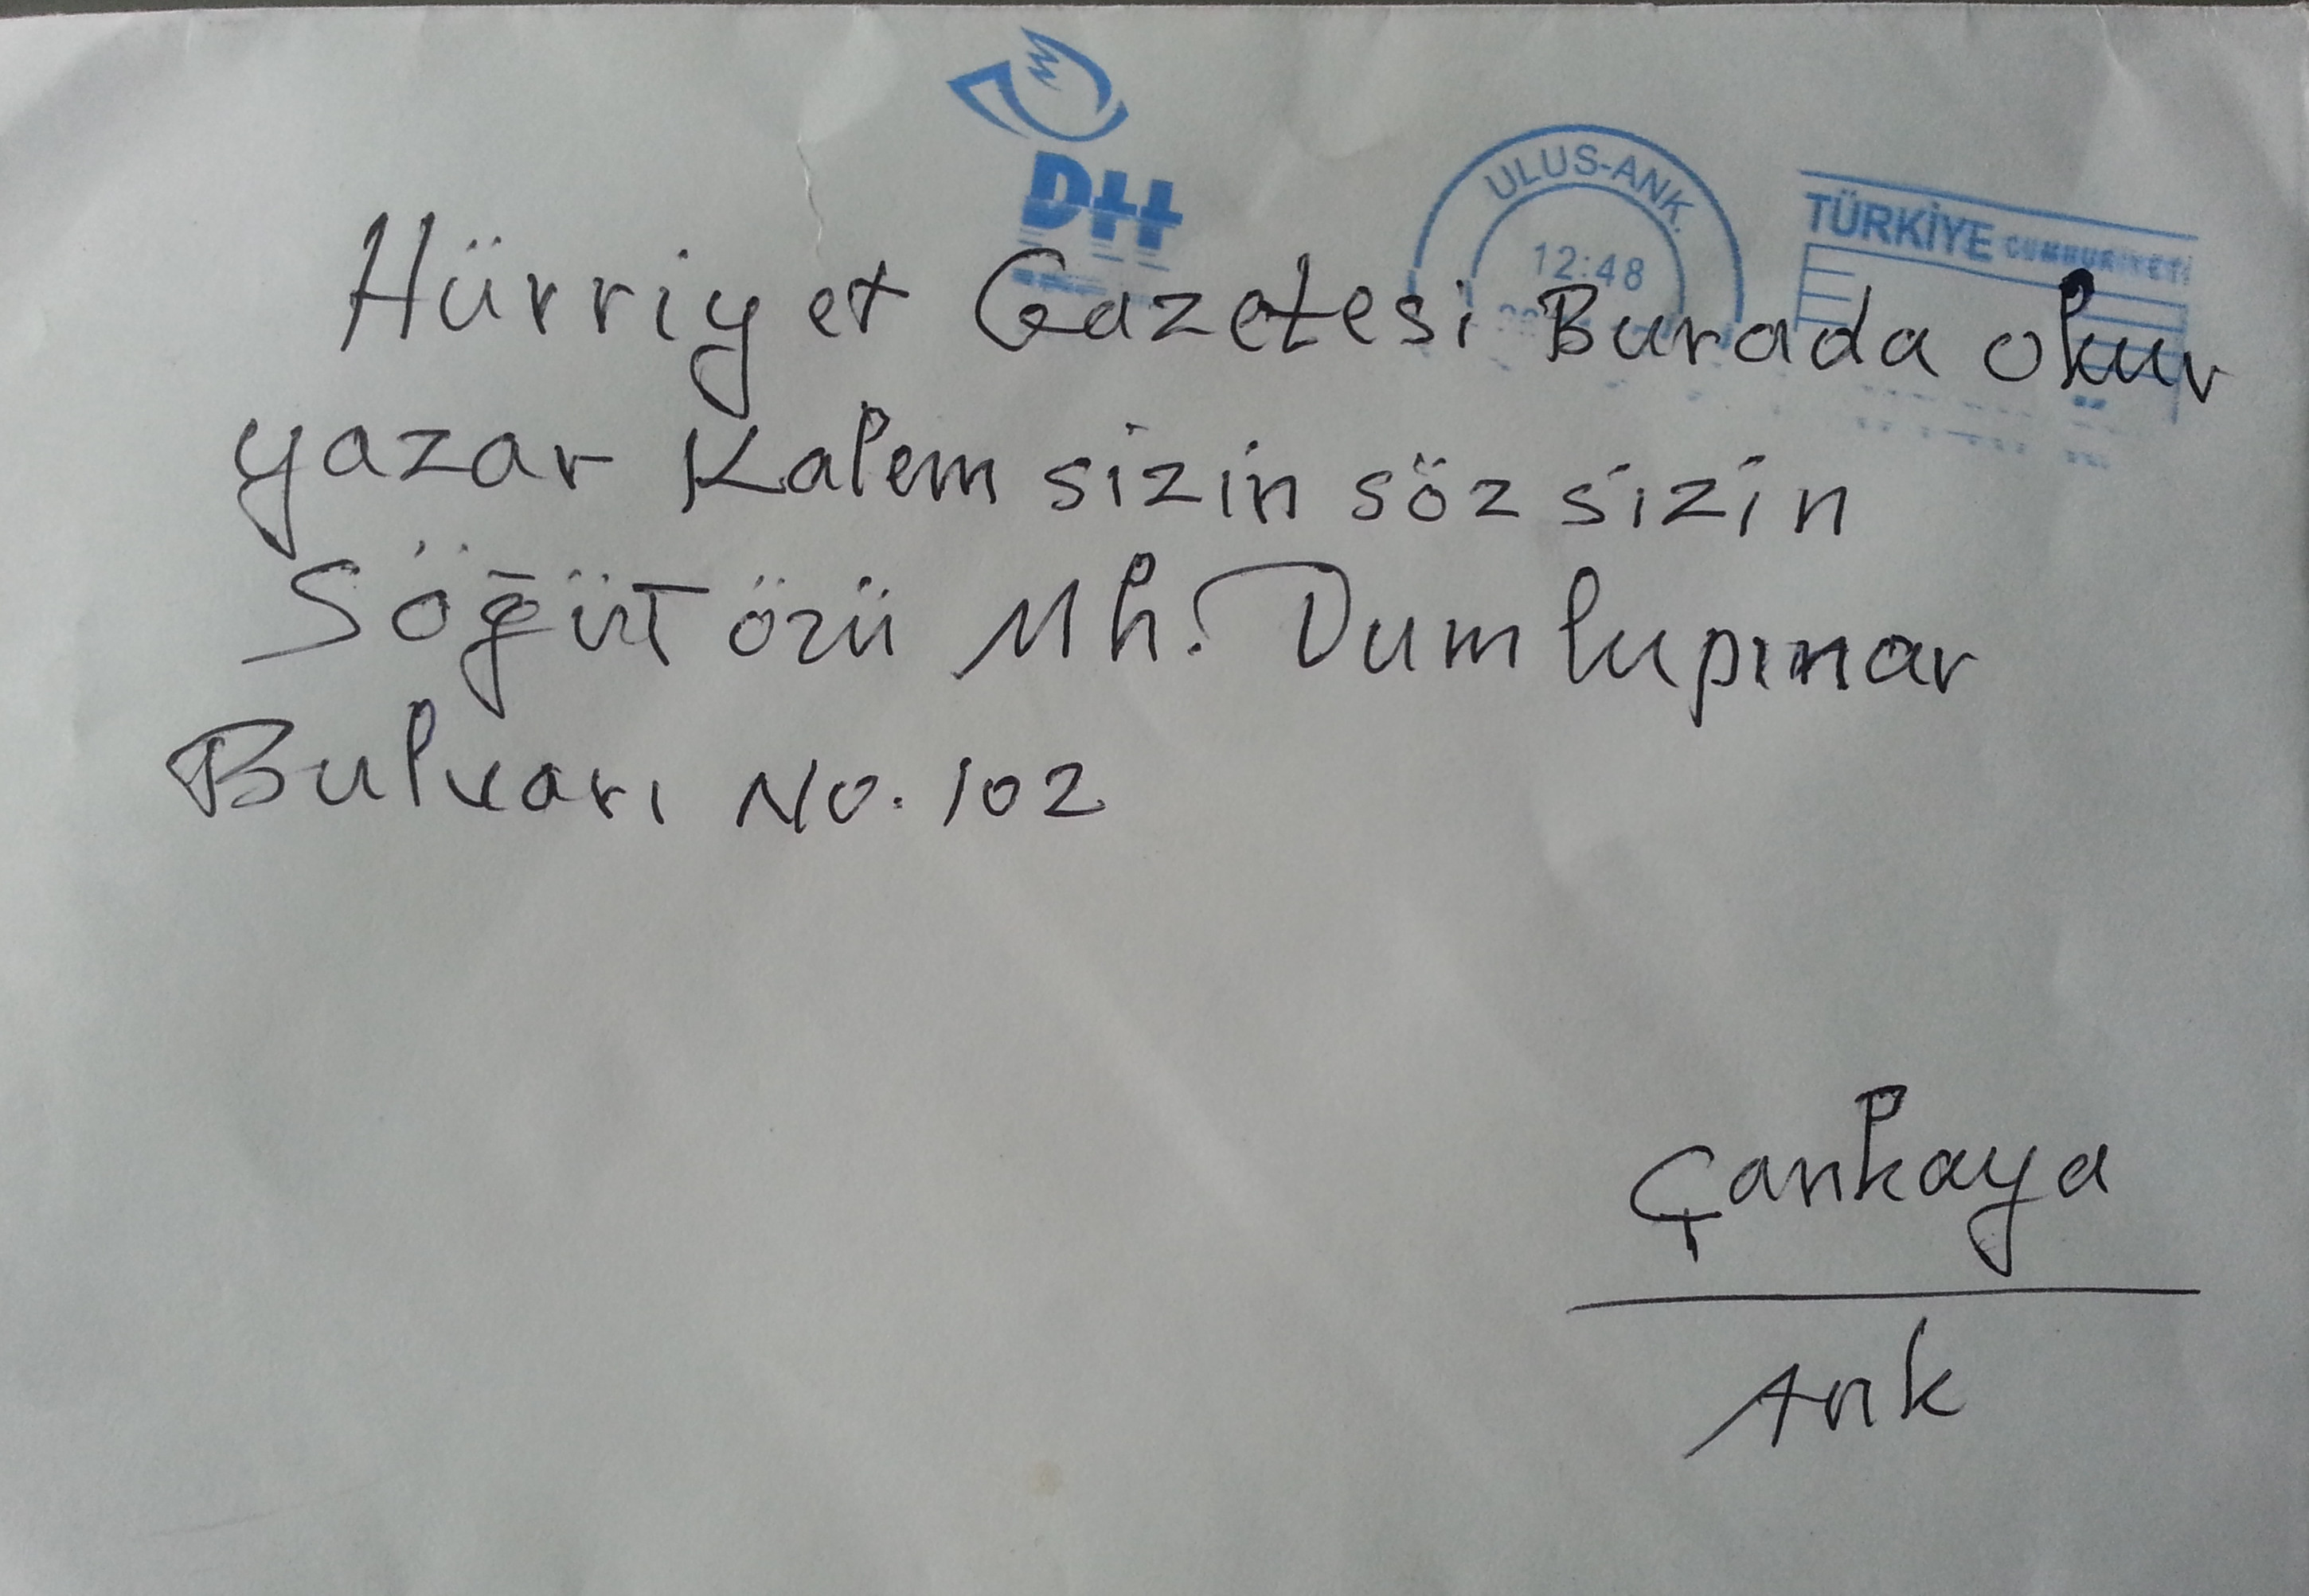 ULUS-ANK.
12:48
TÜRKİYE CUMHURİYETİ
Hürriyet Gazetesi Burada okur
yazar Kalem sizin söz sizin
Söğüt özü Mh. Dumlupınar
Bulvarı No. 102
Çankaya
Ank